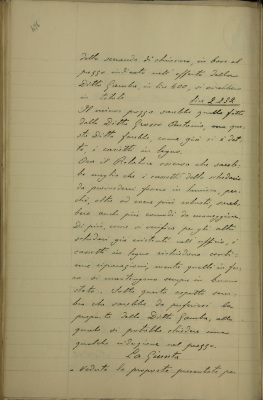 della seconda di chiusura, in base al
prezzo indicato nell'offerta della
Ditta Gamba, in Lire 600, o sarebbero
in totale Lire 2.252.
Il minor prezzo sarebbe quello fatto
dalla Ditta Grosso Antonio, ma que-
sta Ditta farebbe, come già si è det-
to, i cassetti in legno.
Ora il Relatore osserva che sareb-
be meglio che i cassetti dello schedario
da provvedersi fossero in lamiera, per-
chè, oltre ad essere più robusti, sareb-
bero anche più comodi da maneggiare.
Di più, come si verifica per gli altri
schedari già esistenti nell'ufficio, i
cassetti in legno richiedono conti-
nue riparazioni, mentre quelli in fer-
ro si mantengono sempre in buono
stato. Sotto questo aspetto sem-
bra che sarebbe da preferirsi la
proposta della Ditta Gamba, alla
quale si potrebbe chiedere una
qualche riduzione nel prezzo.
La Giunta
veduta la proposta presentata per